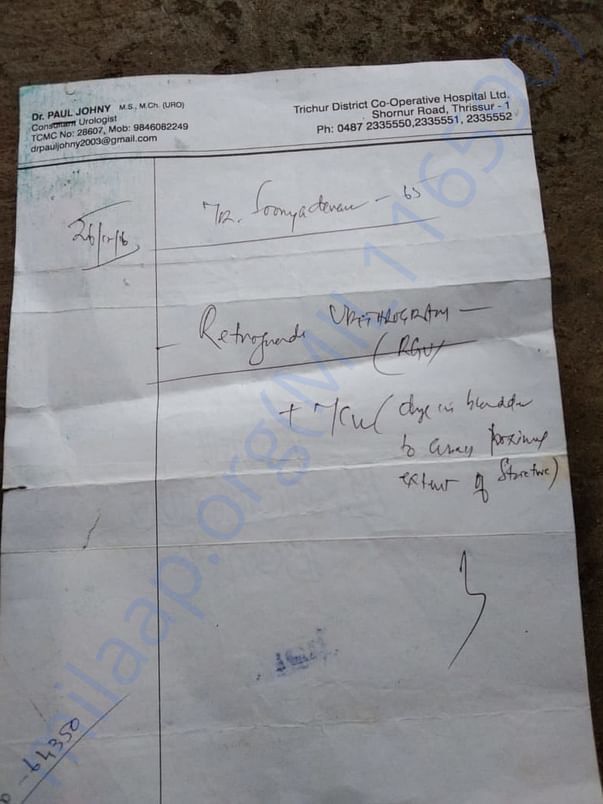 Dr. PAUL JOHNY M.S., M.Ch. (URO)
Consultant Urologist
TCMC No: 28607, Mob: 9846082249
drpauljohny2003@gmail.com
Trichur District Co-Operative Hospital Ltd.
Shornur Road, Thrissur - 1
Ph: 0487 2335550,2335551, 2335552
Mr. - 65
Retrograde URETHROGRAM —
(RGU)
+ MCU (dye in bladder
to assess proximal
extent of Stricture)
- 64350
milaap.org(MIL116590)